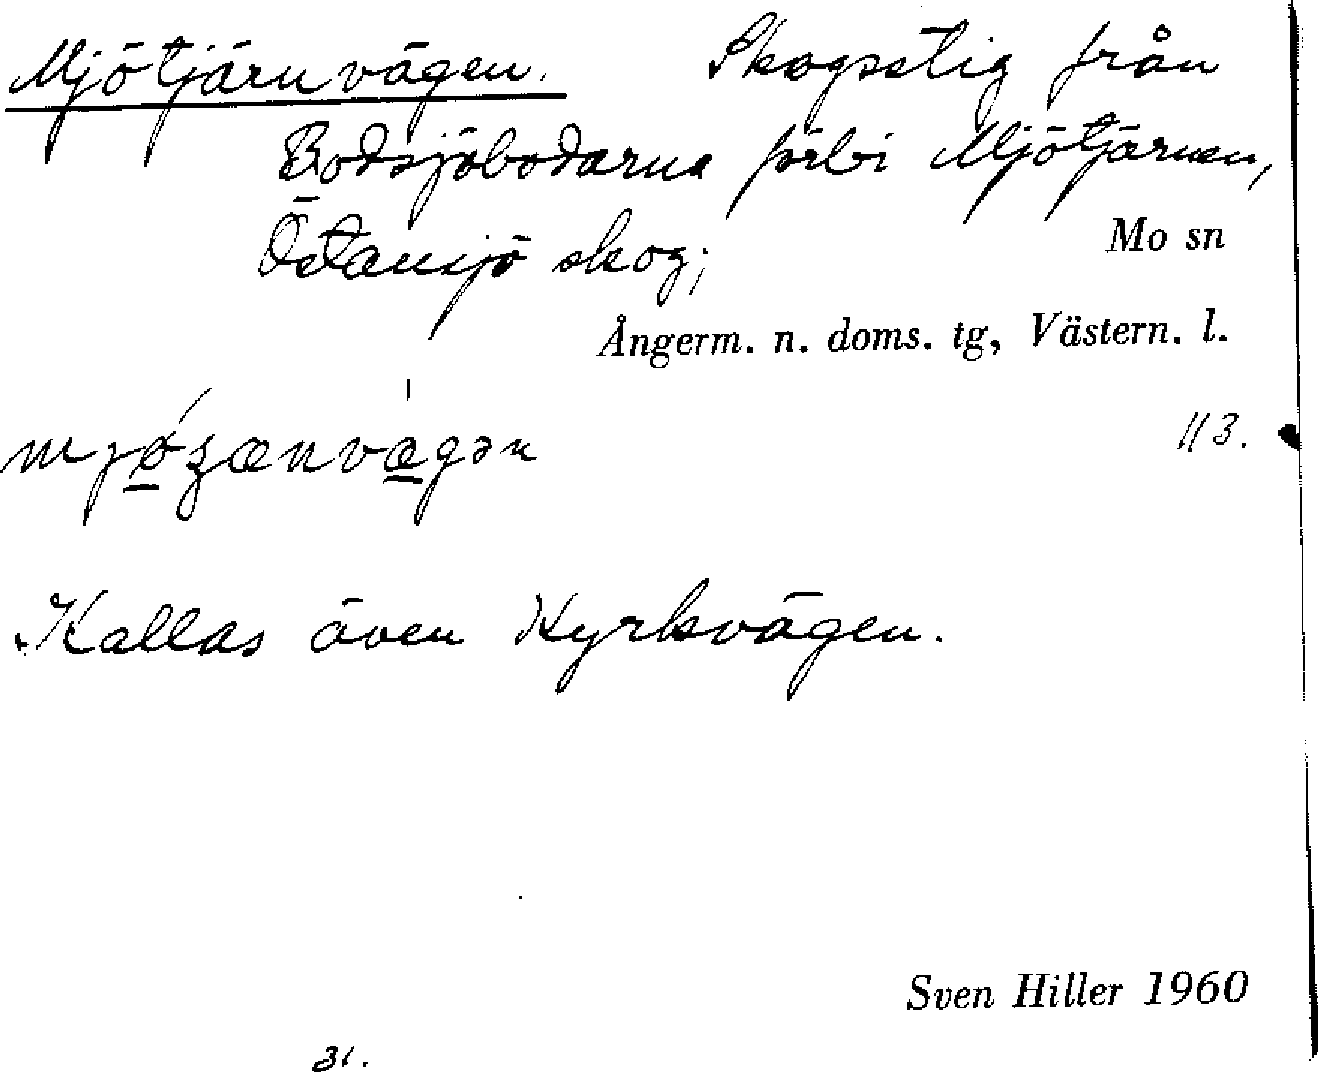 Mjötjärnvägen. Skogsstig från
Bodsjöbodarna förbi Mjötjärnen,
Östansjö skog;
Mo sn
Ångerm. n. doms. tg, Västern. l.
113.
Kallas även Kyrkvägen.
Sven Hiller 1960
31.